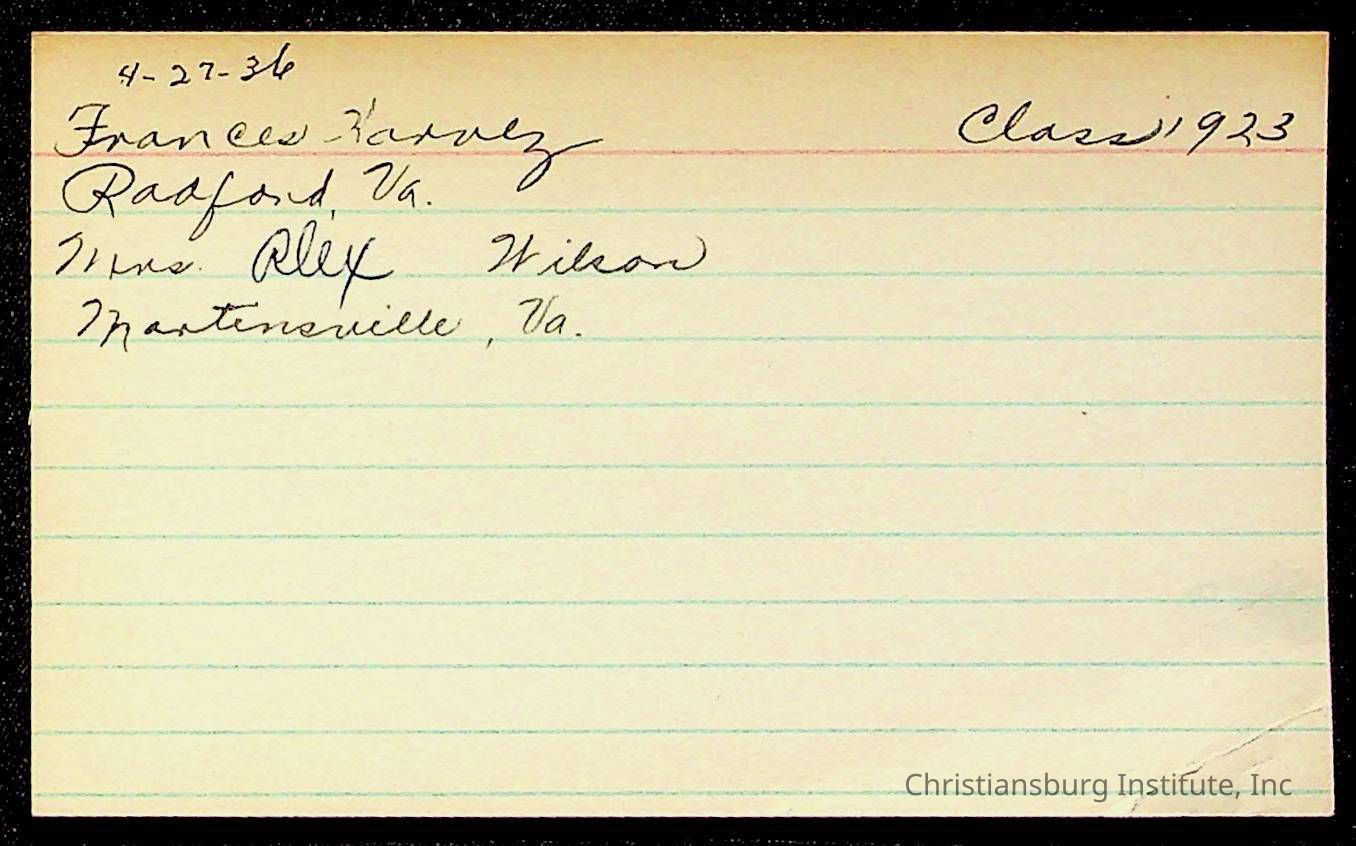 4-27-36
Frances Harvey Class 1923
Radford, Va.
Mrs. Alex Wilson
Martensville, Va.
Christiansburg Institute, Inc